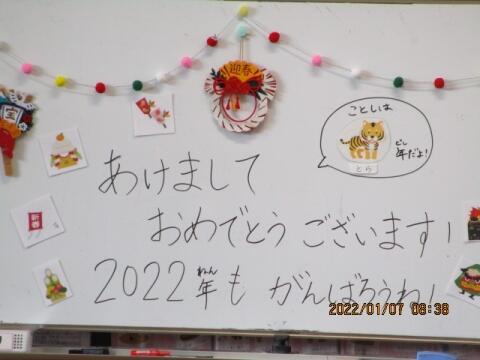 迎春
ことしは
とら
どし
年だよ!
宝
新春
あけまして
おめでとうございます!
2022年もがんばろうね!
ねん
2022/01/07 08:38